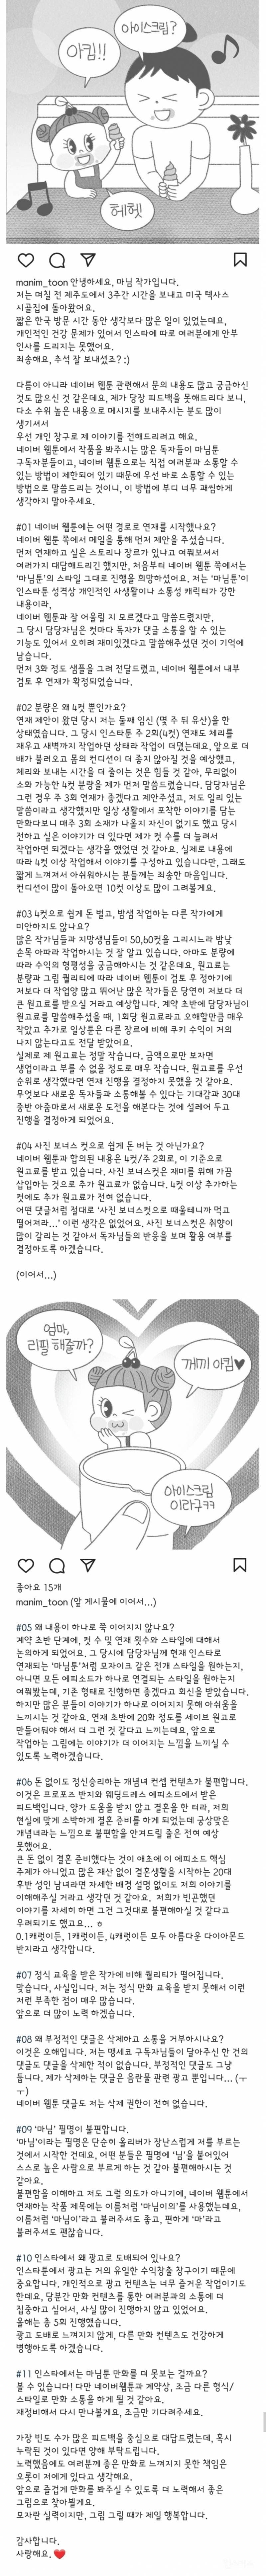 아이스크림?
아킴!!
헤헷
manim_toon 안녕하세요, 마님 작가입니다.
저는 며칠 전 제주도에서 3주간 시간을 보내고 미국 텍사스
시골집에 돌아왔어요.
짧은 한국 방문 시간 동안 생각보다 많은 일이 있었는데요,
개인적인 건강 문제가 있어서 인스타에 따로 여러분에게 안부
인사를 드리지는 못했어요.
죄송해요, 추석 잘 보내셨죠? :)
다름이 아니라 네이버 웹툰 관련해서 문의 내용도 많고 궁금하신
것도 많으신 것 같은데요, 제가 당장 피드백을 못해드리다 보니,
다소 수위 높은 내용으로 메시지를 보내주시는 분도 많이
생기셔서
우선 개인 창구로 제 이야기를 전해드리려고 해요.
네이버 웹툰에서 작품을 봐주시는 많은 독자들이 마님툰
구독자분들이고, 네이버 웹툰으로는 직접 여러분과 소통할 수
있는 방법이 제한되어 있기 때문에 우선 바로 소통할 수 있는
방법으로 말씀드리는 것이니, 이 방법에 부디 너무 괘씸하게
생각하지 말아주세요.
#01 네이버 웹툰에는 어떤 경로로 연재를 시작했나요?
네이버 웹툰 쪽에서 메일을 통해 먼저 제안을 주셨습니다.
먼저 연재하고 싶은 스토리나 장르가 있냐고 여쭤보셔서
여러가지 대답해드리긴 했지만, 처음부터 네이버 웹툰 쪽에서는
'마님툰'의 스타일 그대로 진행을 희망하셨어요. 저는 '마님툰'이
인스타툰 성격상 개인적인 사생활이나 소통성 캐릭터가 강한
내용이라,
네이버 웹툰과 잘 어울릴 지 모르겠다고 말씀드렸지만,
그 당시 담당자님은 컷마다 독자가 댓글 소통을 할 수 있는
기능도 있어서 오히려 재미있겠다고 말씀해주셨던 것이 기억에
남습니다.
먼저 3화 정도 샘플을 그려 전달드렸고, 네이버 웹툰에서 내부
검토 후 연재가 확정되었습니다.
#02 분량은 왜 4컷 뿐인가요?
연재 제안이 왔던 당시 저는 둘째 임신 (몇 주 뒤 유산)을 한
상태였습니다. 그 당시 인스타툰 주 2회(4컷) 연재도 체리를
재우고 새벽까지 작업하던 상태라 작업이 더뎠는데요, 앞으로 더
배가 불러오고 몸의 컨디션이 더 좋지 않아질 것을 예상했고,
체리와 보내는 시간을 더 줄이는 것은 힘들 것 같아, 무리없이
소화 가능한 4컷 분량을 제가 먼저 말씀드렸습니다. 담당자님은
그런 경우 주 3회 연재가 좋겠다고 제안주셨고, 저도 일리 있는
말씀이라고 생각했지만 일상 생활에서 포착한 이야기를 담는
만화다보니 매주 3회 소재가 나올지 자신이 없기도 했고 당시
전하고 싶은 이야기가 더 있다면 제가 컷 수를 더 늘려서
작업하면 되겠다는 생각을 했었던 것 같아요. 실제로 내용에
따라 4컷 이상 작업해서 이야기를 구성하고 있습니다만, 그래도
짧게 느껴져서 아쉬워하시는 분들께는 죄송한 마음입니다.
컨디션이 많이 돌아오면 10컷 이상도 많이 그려볼게요.
#03 4컷으로 쉽게 돈 벌고, 밤샘 작업하는 다른 작가에게
미안하지도 않나요?
많은 작가님들과 지망생님들이 50,60컷을 그리시느라 밤낮
손목 아파라 작업하시는 것 잘 알고 있습니다. 아마도 분량에
따라 수익의 형평성을 궁금해하시는 것 같은데요, 원고료는
분량과 그림 퀄리티에 따라 네이버 웹툰이 검토 후 정하기에
저보다 더 작업양 많고 뛰어난 많은 작가들은 당연히 저보다 더
큰 원고료를 받으실 거라고 예상합니다. 계약 초반에 담당자님이
원고료를 말씀해주셨을 때, 1회당 원고료라고 오해할만큼 매우
작았고 추가로 일상툰은 다른 장르에 비해 쿠키 수익이 거의
나지 않는다고도 전달 받았어요.
실제로 제 원고료는 정말 작습니다. 금액으로만 보자면
생업이라고 부를 수 없을 정도로 매우 작습니다. 원고료를 우선
순위로 생각했다면 연재 진행을 결정하지 못했을 것 같아요.
무엇보다 새로운 독자들과 소통해볼 수 있다는 기대감과 30대
중반 아줌마로서 새로운 도전을 해본다는 것에 설레어 두고
진행을 결정하게 되었어요.
#04 사진 보너스 컷으로 쉽게 돈 버는 것 아닌가요?
네이버 웹툰과 합의된 내용은 4컷/주 2회로, 이 기준으로
원고료를 받고 있습니다. 사진 보너스컷은 재미를 위해 가끔
삽입하는 것으로 추가 원고료가 없습니다. 4컷 이상 추가하는
컷에도 추가 원고료가 전혀 없습니다.
어떤 댓글처럼 절대로 '사진 보너스컷으로 때울테니까 먹고
떨어져라...' 이런 생각은 없었어요. 사진 보너스컷은 취향이
많이 갈리는 것 같아서 독자님들의 반응을 보며 활용 여부를
결정하도록 하겠습니다.
(이어서...)
엄마,
리필 해줄까?
께끼 아킴♥
아이스크림
이라구ㅋㅋ
좋아요 15개
manim_toon (앞 게시물에 이어서...)
#05 왜 내용이 하나로 쭉 이어지지 않나요?
계약 초반 단계에, 컷 수 및 연재 횟수와 스타일에 대해서
논의하게 되었어요. 그 당시에 담당자님께 현재 인스타로
연재되는 '마님툰'처럼 모자이크 같은 전개 스타일을 원하는지,
아니면 모든 에피소드가 하나로 연결되는 스타일을 원하는지
여쭤봤는데, 기존 형태로 진행하면 좋겠다고 회신을 받았습니다.
하지만 많은 분들이 이야기가 하나로 이어지지 못해 아쉬움을
느끼시는 것 같아요. 연재 초반에 20화 정도를 세이브 원고로
만들어둬야 해서 더 그런 것 같다고 느끼는데요, 앞으로
작업하는 그림에는 이야기가 더 이어지는 느낌을 느끼실 수
있도록 노력하겠습니다.
#06 돈 없이도 정신승리하는 개념녀 컨셉 컨텐츠가 불편합니다.
이것은 프로포즈 반지와 웨딩드레스 에피소드에서 받은
피드백입니다. 양가 도움을 받지 않고 결혼을 한 터라, 저희
현실에 맞게 소박하게 결혼 준비를 하게 되었는데 궁상맞은
개념녀라는 느낌으로 불편함을 안겨드릴 줄은 전혀 예상
못했어요.
큰 돈 없이 결혼 준비했다는 것이 애초에 이 에피소드 핵심
주제가 아니었고 많은 재산 없이 결혼생활을 시작하는 20대
후반 성인 남녀라면 자세한 배경 설명 없이도 저희 이야기를
이해해주실 거라고 생각했던 것 같아요. 저희가 빈곤했던
이야기를 자세히 하면 그건 그것대로 불편해하실 것 같다고
우려되기도 했고요... ㅎ
0.1캐럿이든, 1캐럿이든, 4캐럿이든 모두 아름다운 다이아몬드
반지라고 생각합니다.
#07 정식 교육을 받은 작가에 비해 퀄리티가 떨어집니다.
맞습니다, 사실입니다. 저는 정식 만화 교육을 받지 못해서 이런
저런 부족한 점이 매우 많습니다.
앞으로 더 많이 노력 하겠습니다.
#08 왜 부정적인 댓글은 삭제하고 소통을 거부하시나요?
이것은 오해입니다. 저는 맹세코 구독자님들이 달아주신 한 건의
댓글도 댓글을 삭제한 적이 없습니다. 부정적인 댓글도 그냥
둡니다. 제가 삭제하는 댓글은 음란물 관련 광고 뿐입니다... (ㅜ
ㅜ)
네이버 웹툰 댓글도 저는 삭제 권한이 전혀 없습니다.
#09 '마님' 필명이 불편합니다.
'마님'이라는 필명은 단순히 올리버가 장난스럽게 저를 부르는
것에서 시작한 건데요, 어떤 분들은 필명에 '님'을 붙여있어
스스로 높은 사람으로 부르게 하는 것 같아 불편해하시는 것
같아요.
불편함을 이해하고 저도 그럴 의도가 아니기에, 네이버 웹툰에서
연재하는 작품 제목에는 이름처럼 '마님이의'를 사용했는데요,
이름처럼 '마님이'라고 불러주셔도 좋고, 편하게 '마'라고
불러주셔도 괜찮습니다.
#10 인스타에서 왜 광고로 도배되어 있나요?
인스타툰에서 광고는 거의 유일한 수익창출 창구이기 때문에
중요합니다. 개인적으로 광고 컨텐츠는 너무 즐거운 작업이기도
한데요, 당분간 만화 컨텐츠를 통한 여러분과의 소통에 더
집중하고 싶어서, 사실 많이 진행하지 않고 있었어요.
올해는 총 5회 진행했습니다.
광고 도배로 느껴지지 않게, 다른 만화 컨텐츠도 건강하게
병행하도록 하겠습니다.
#11 인스타에서는 마님툰 만화를 더 못보는 걸까요?
볼 수 있습니다! 다만 네이버웹툰과 계약상, 조금 다른 형식/
스타일로 만화 소통을 하게 될 것 같아요.
재정비해서 다시 만나볼게요, 조금만 기다려주세요.
가장 빈도 수가 많은 피드백을 중심으로 대답드렸는데, 혹시
누락된 것이 있다면 양해 부탁드립니다.
노력했음에도 여러분께 좋은 만화로 느껴지지 못한 책임은
오롯이 저에게 있다고 생각해요.
앞으로 즐겁게 만화를 봐주실 수 있도록 더 노력해서 좋은
그림으로 찾아뵐게요.
모자란 실력이지만, 그림 그릴 때가 제일 행복합니다.
감사합니다.
사랑해요. ❤️